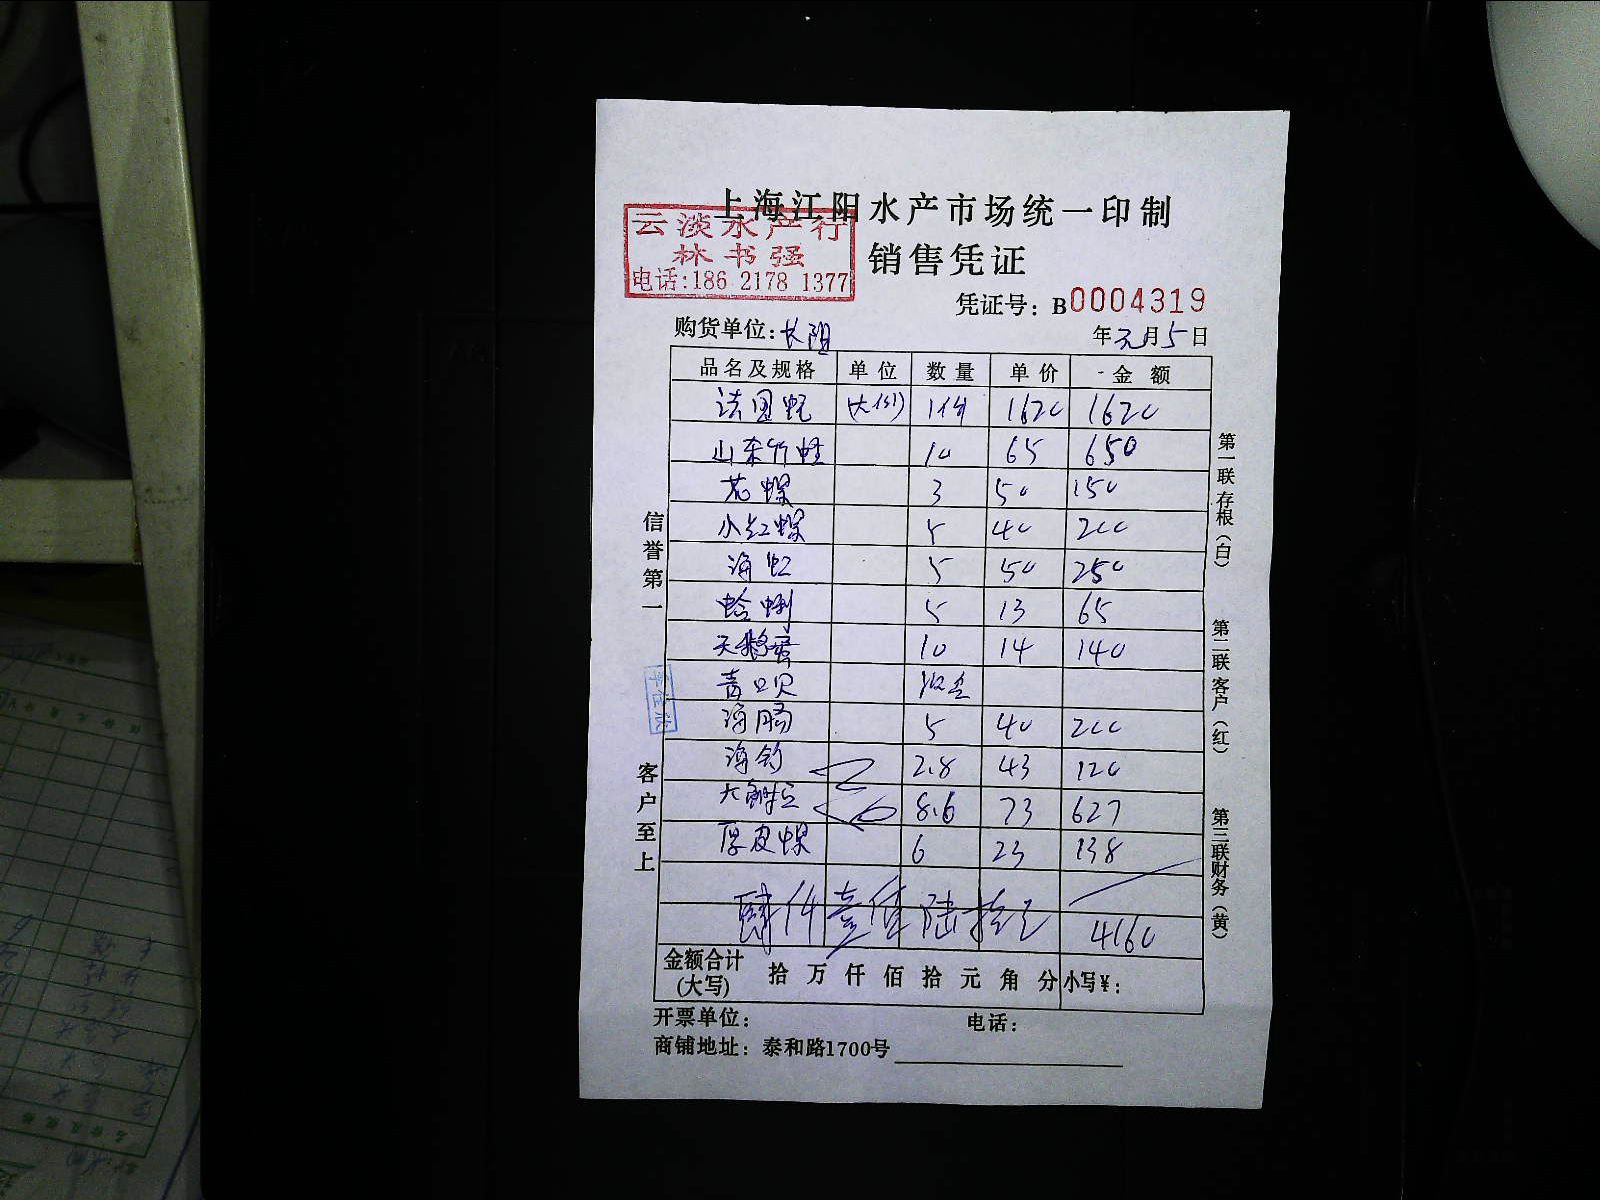 上海江阳水产市场统一印制
云淡水产行
林书强
电话:186 2178 1377
销售凭证
凭证号: B0004319
购货单位: 长阳
年元月5日
品名及规格 单位 数量 单价 金额
法国蚝 1620 1620
山东竹蛏 10 65 650
花螺 3 50 150
小红螺 5 40 200
海虹 5 50 250
蛤蜊 5 13 65
天鹅蛋 10 14 140
青口贝
海肠 5 40 200
海钓 2.8 43 120
8.6 73 627
厚皮螺 6 23 138
肆仟壹佰陆拾元 4160
金额合计(大写) 拾 万 仟 佰 拾 元 角 分 小写¥:
开票单位: 电话:
商铺地址: 泰和路1700号
信誉第一
客户至上
第一联存根(白)
第二联客户(红)
第三联财务(黄)